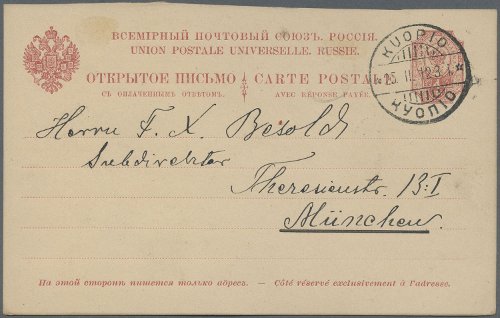 ВСЕМІРНЫЙ ПОЧТОВЫЙ СОЮЗЪ. РОССІЯ.
UNION POSTALE UNIVERSELLE. RUSSIE.
ОТКРЫТОЕ ПИСЬМО
CARTE POSTALE
СЪ ОПЛАЧЕННЫМЪ ОТВѢТОМЪ.
AVEC RÉPONSE PAYÉE.
KUOPIO
25. II. 12. 3
КУОПІО
Herrn F. X. Besold
Subdirektor
Theresienstr. 13:I
München.
На этой сторонѣ пишется только адресъ. — Côté réservé exclusivement à l'adresse.